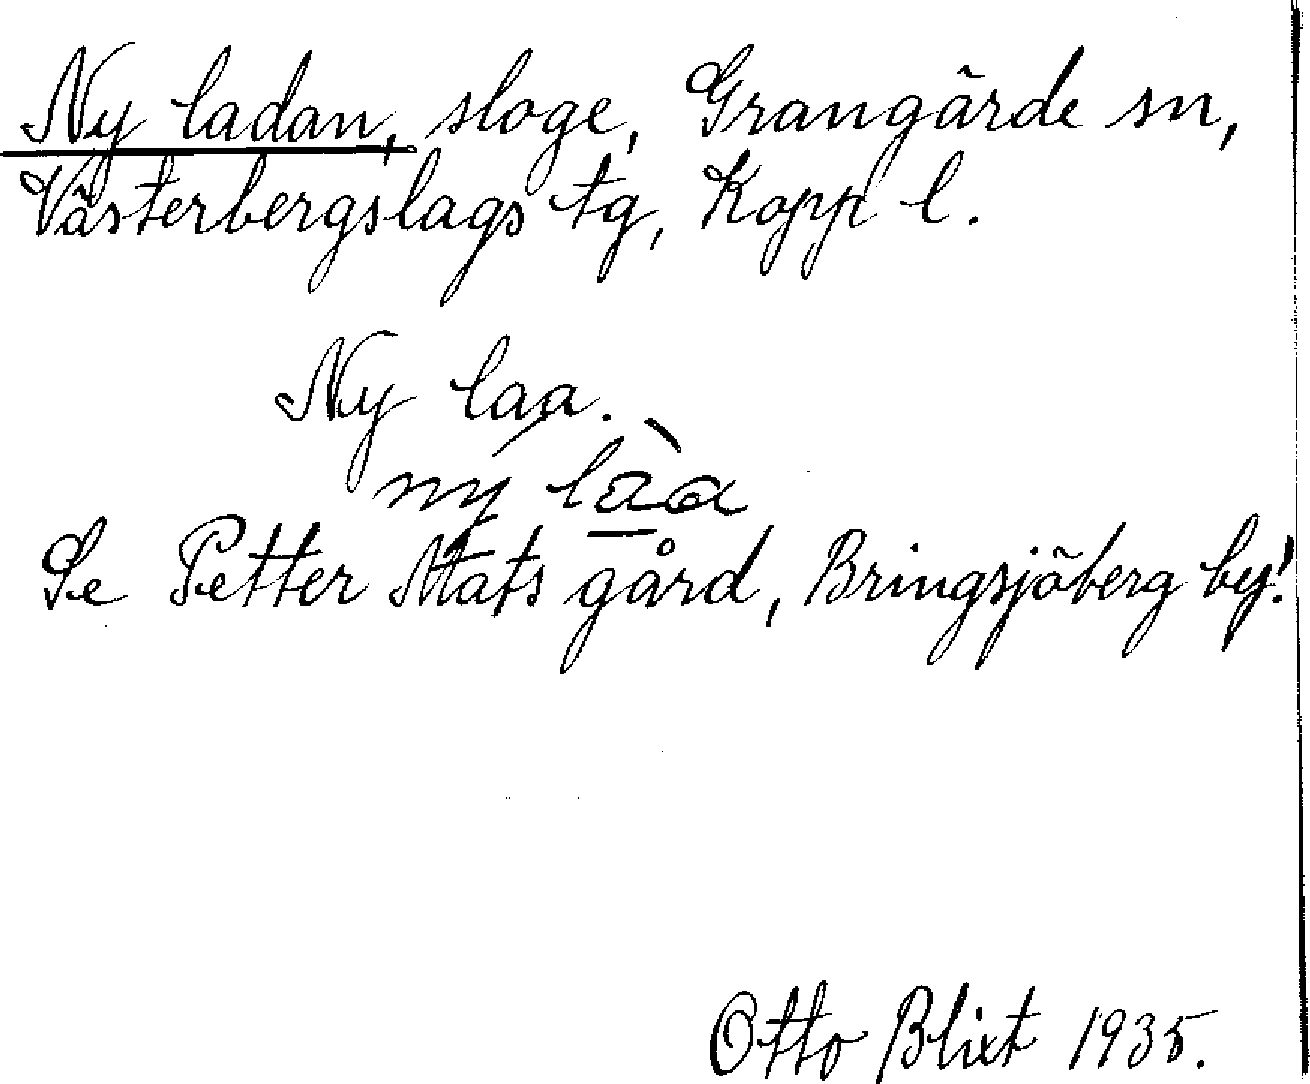 Ny ladan, sloge, Grangärde sn,
Västerbergslags tg, Kopp l.
Ny laa.
ny làa
Se Petter Mats gård, Bringsjöberg by!
Otto Blixt 1935.